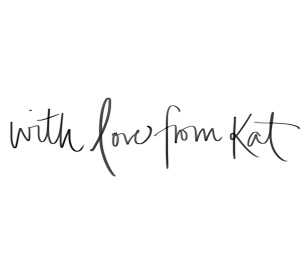 with love from Kat